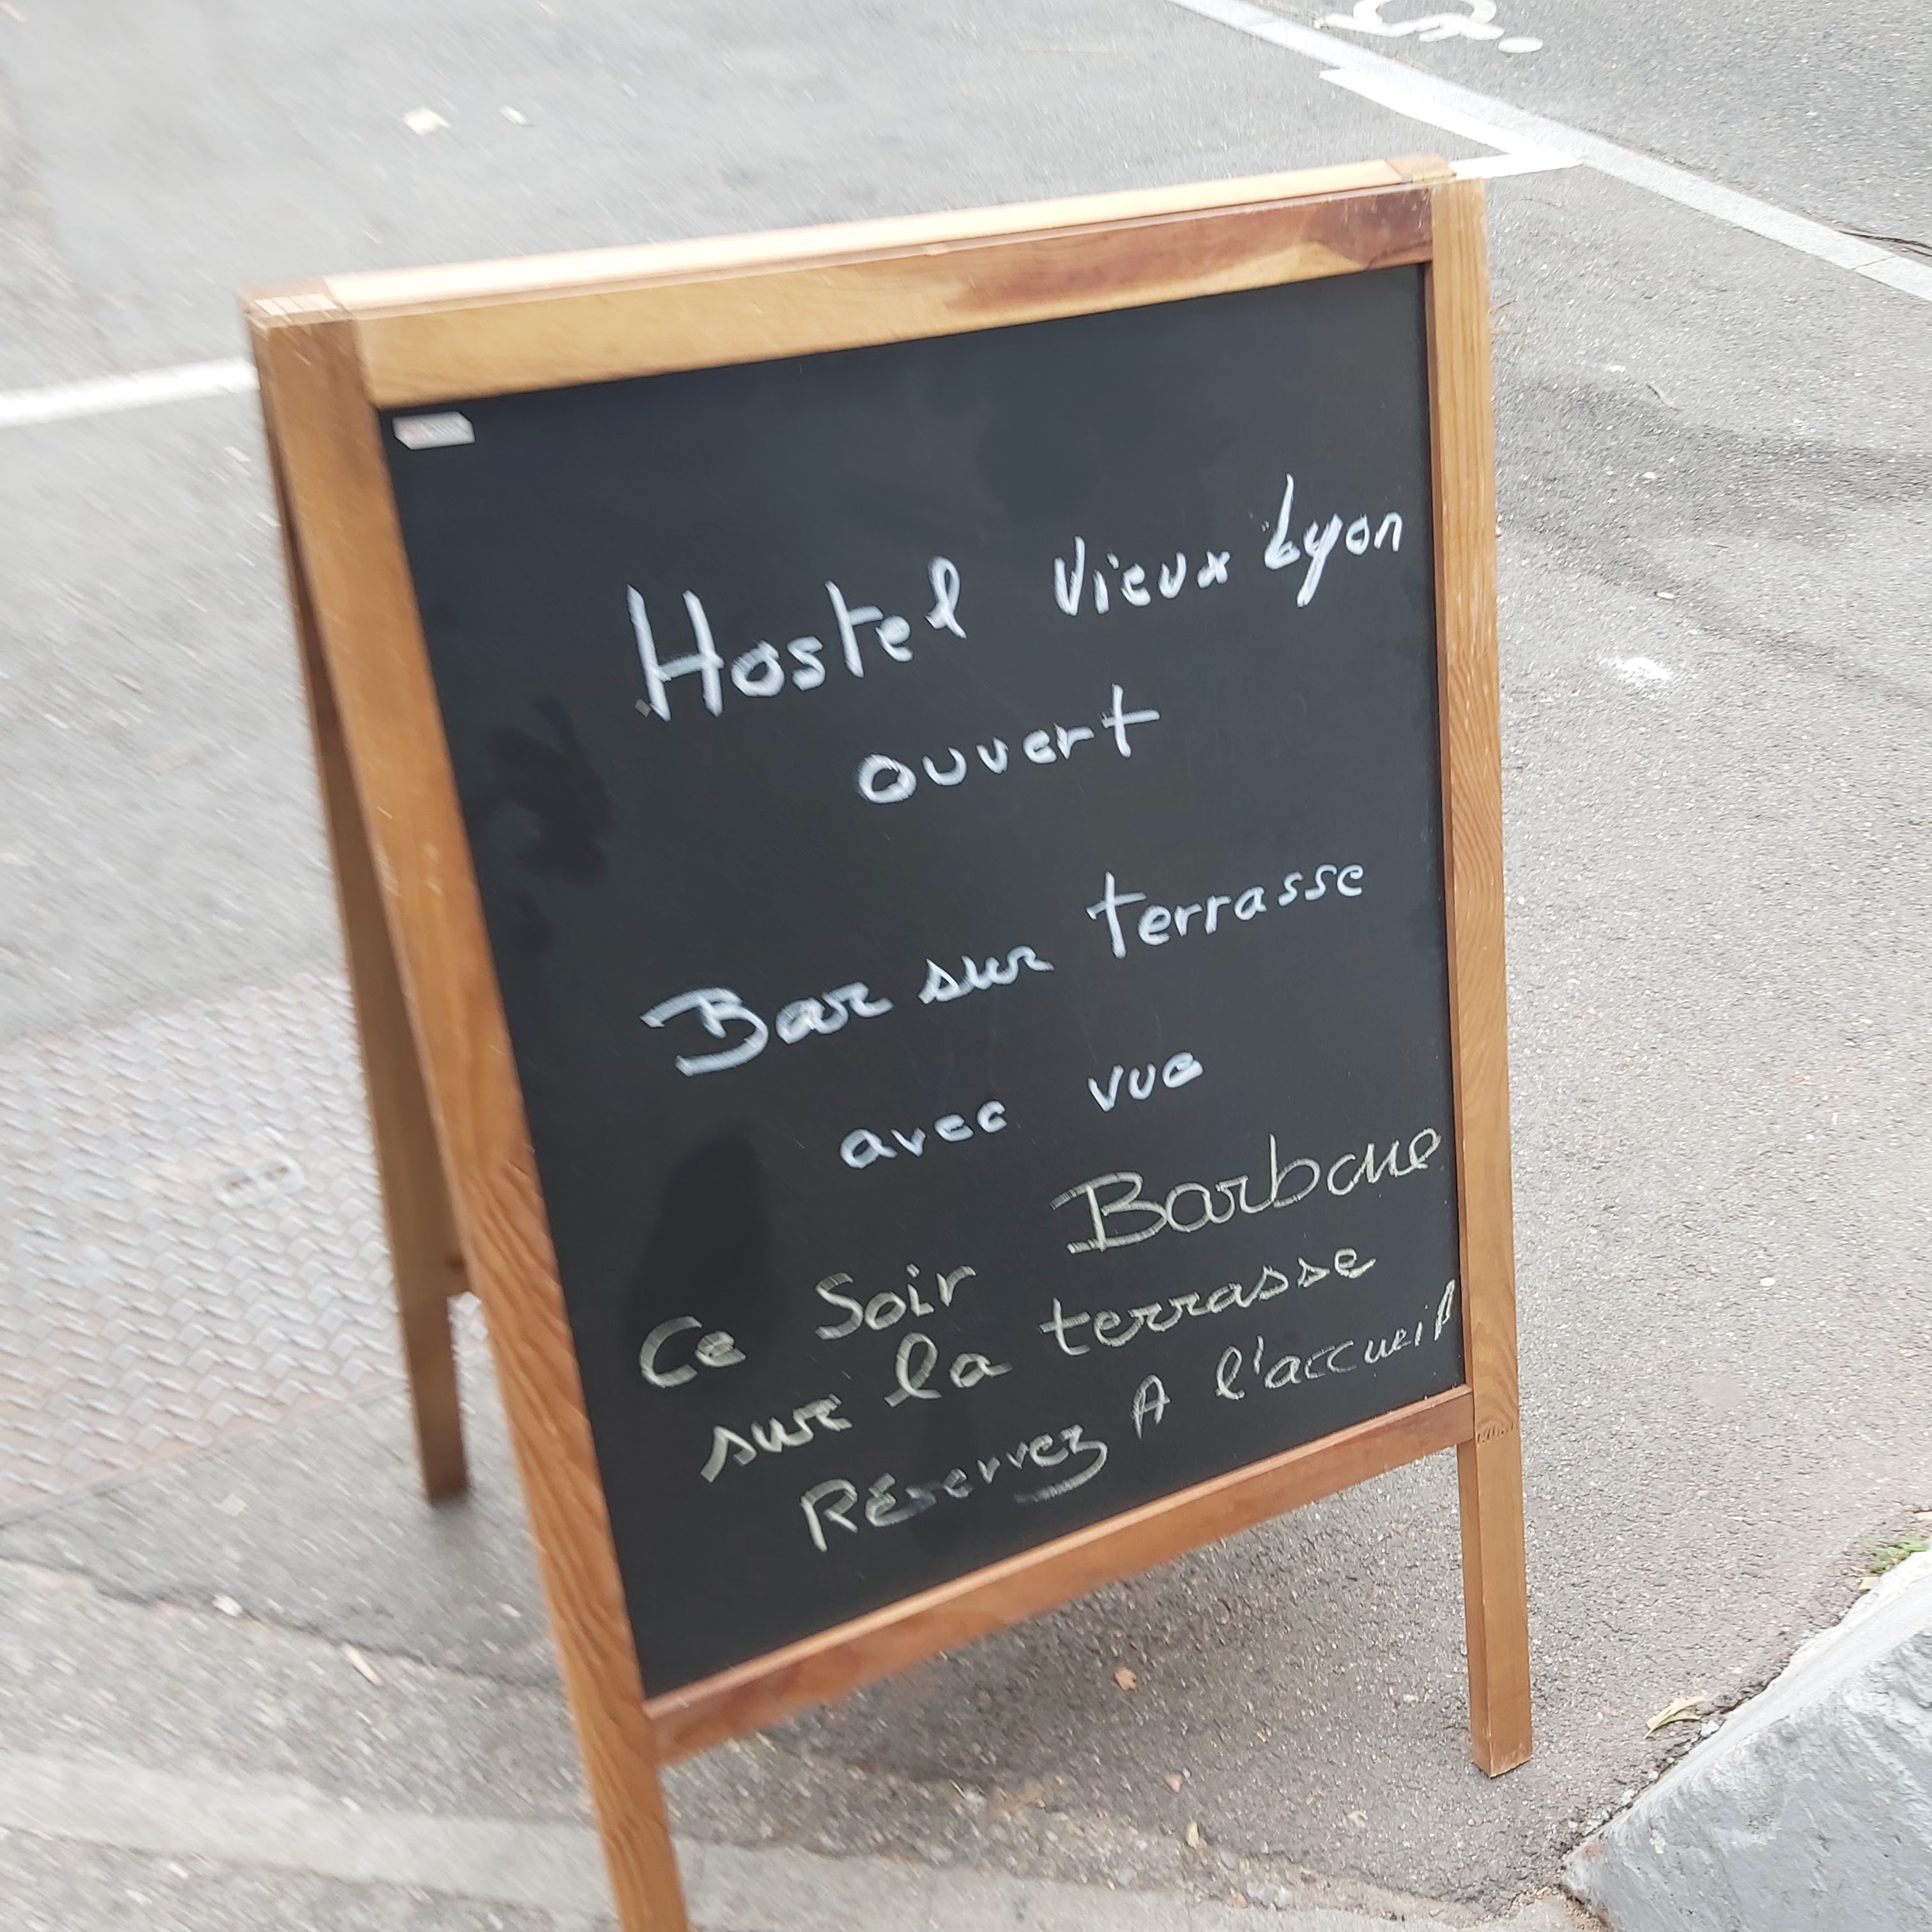 Hostel Vieux Lyon
ouvert
Bar sur terrasse
avec vue
Ce Soir Barbcue
sur la terrasse
RÉservez A l'accueil